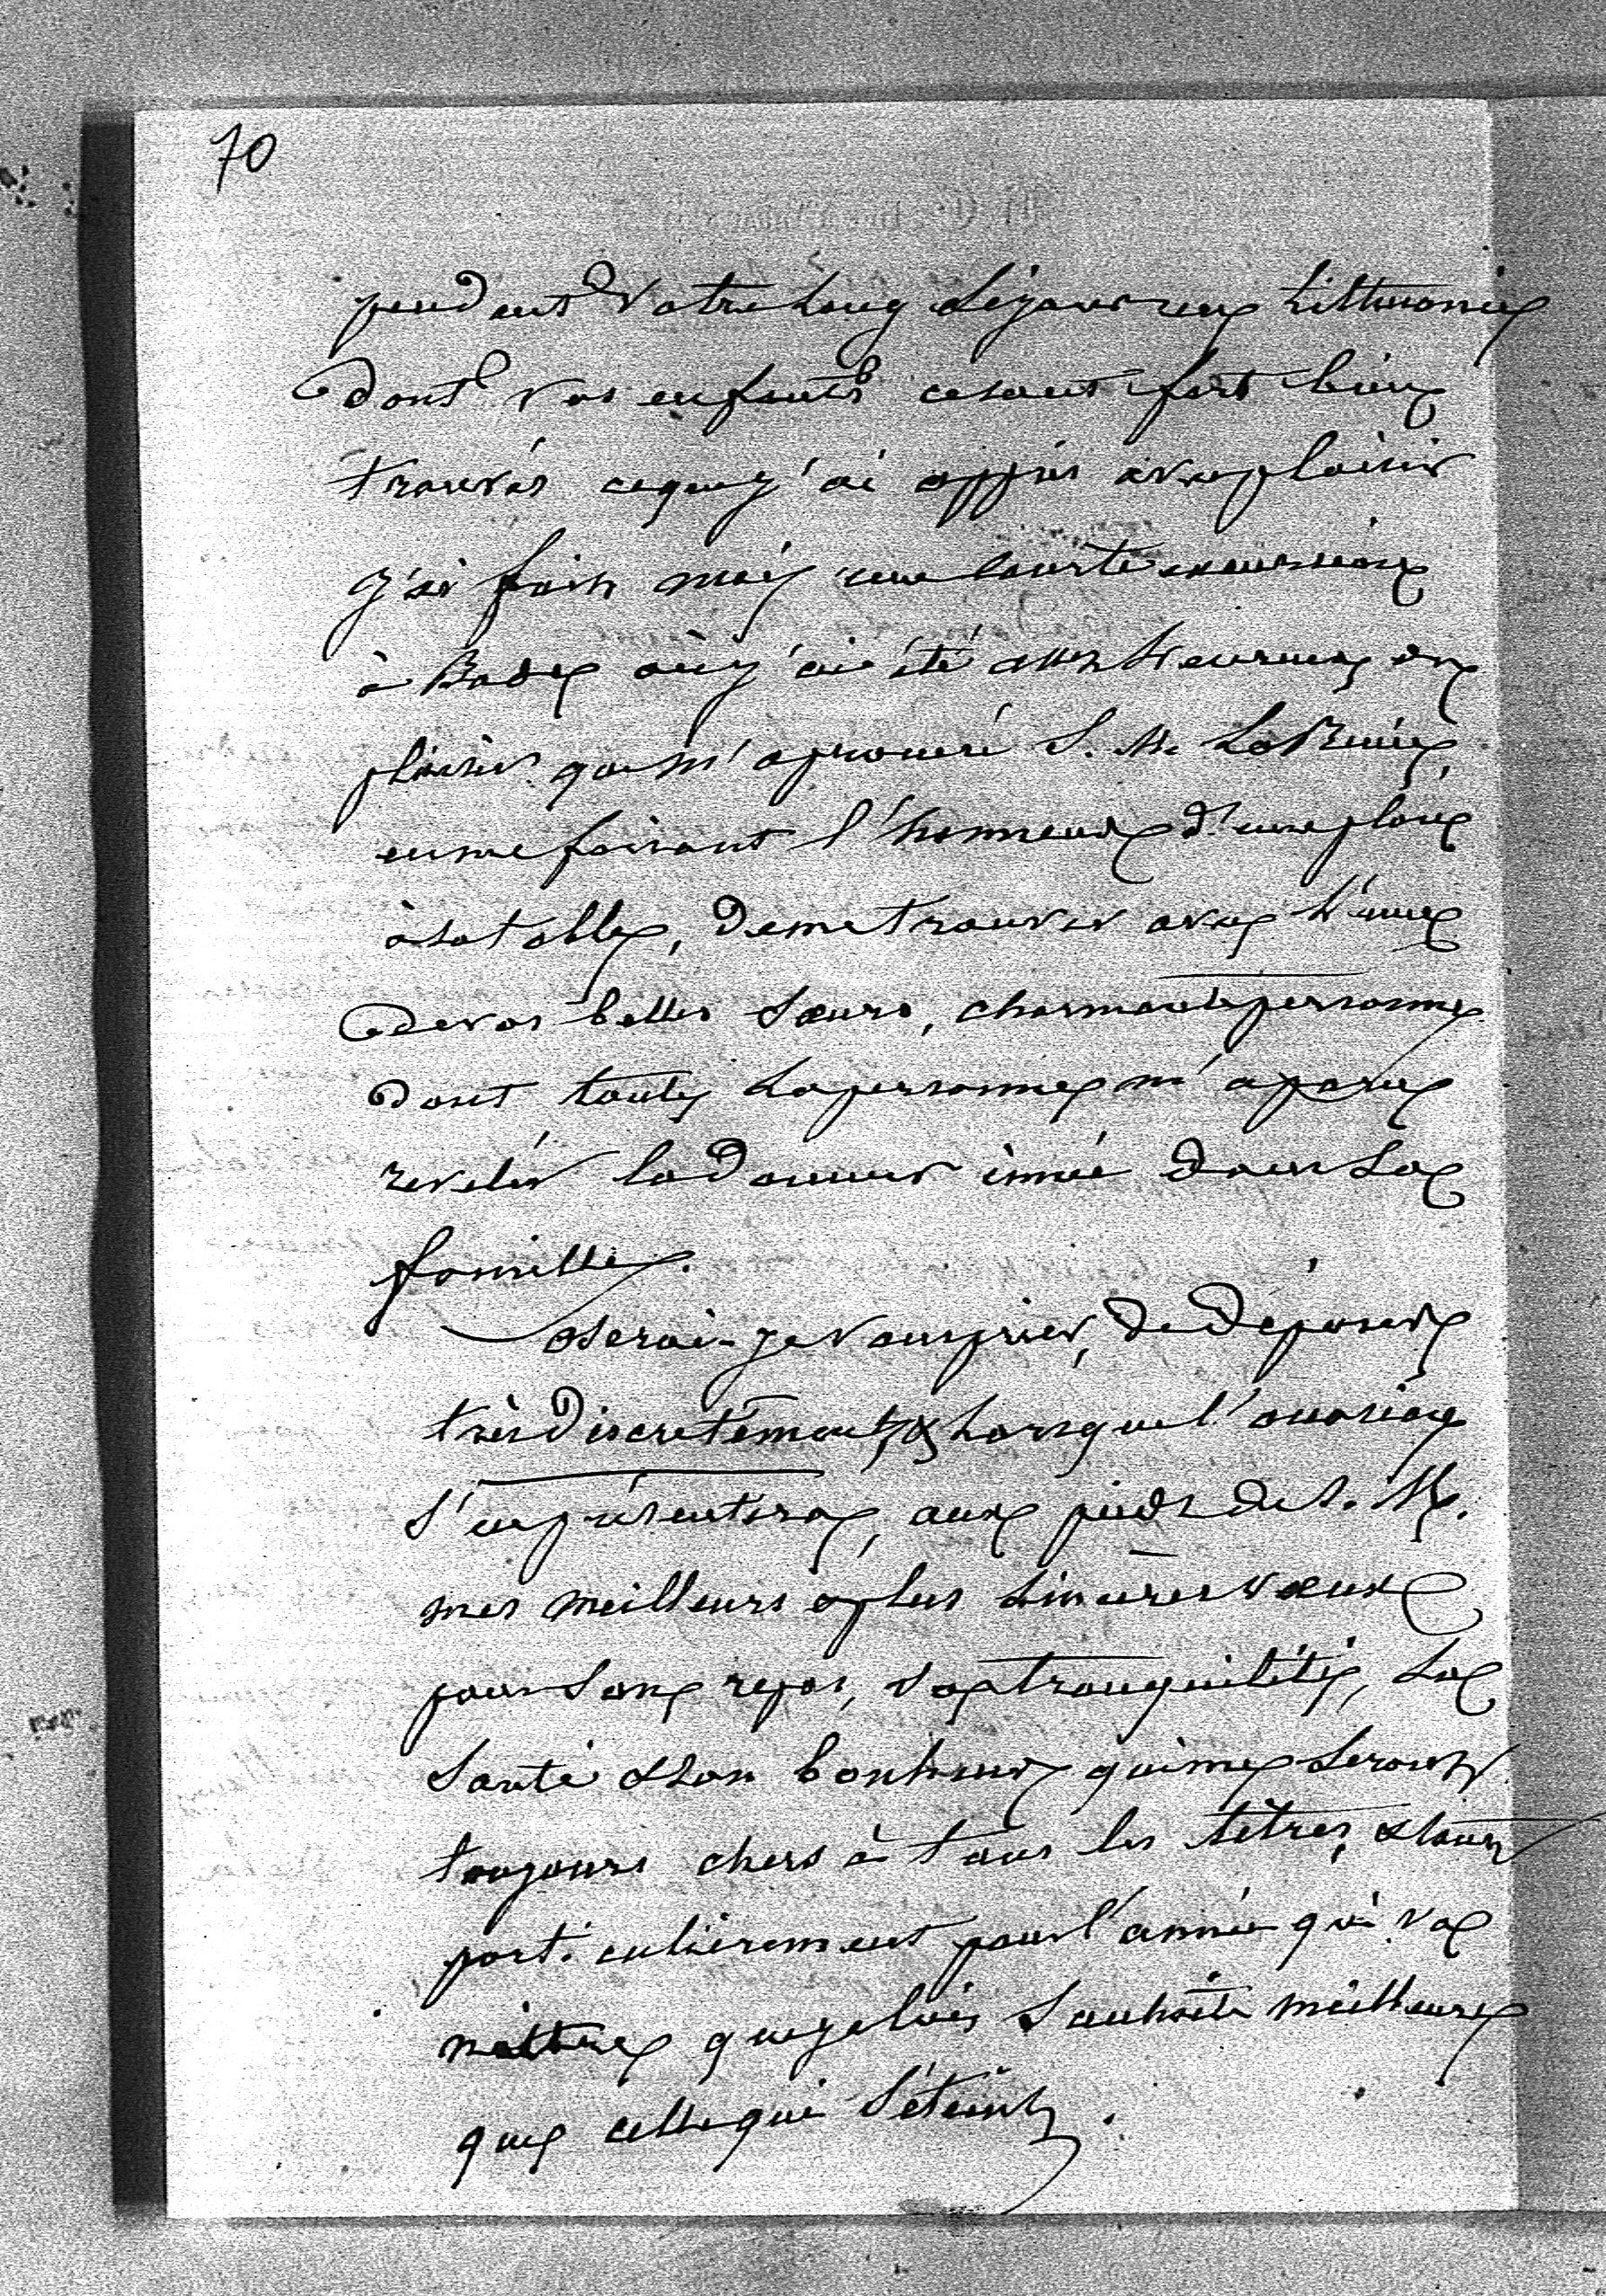 70
pendant votre long séjour en Litthuanie
dont vos enfants ce sont fort bien
trouvés ce que j'ai appris avec plaisir
J'ai fais moi une courte excursion
à Bade où j'ai été assez heureux du
plaisir que m'a procuré S. M. La Reine,
en me faisant l'honneur d'une place
à sa table, de me trouver avec l'une
de vos belles sœurs, charmante personne
dont toute la personne m'a parue
reveler la douceur innée dans la
famille.
oserai-je vous prier, de déposer
très discretement, & lorsque l'occasion
s'en présentera, aux pieds de S. M.
mes meilleurs & plus sincères vœux
pour son repos, sa tranquilité, sa
santé & son bonheur qui me seront
toujours chers à tous les titres, & tout
particulièrement pour l'année qui va
naître que je lui souhaite meilleure
que celle qui s'éteint.